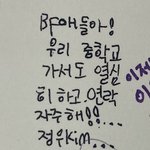 BF애들아!
우리 중학교
가서도 열심
히 하고.연락
자주해!!...
정위Kim...
이